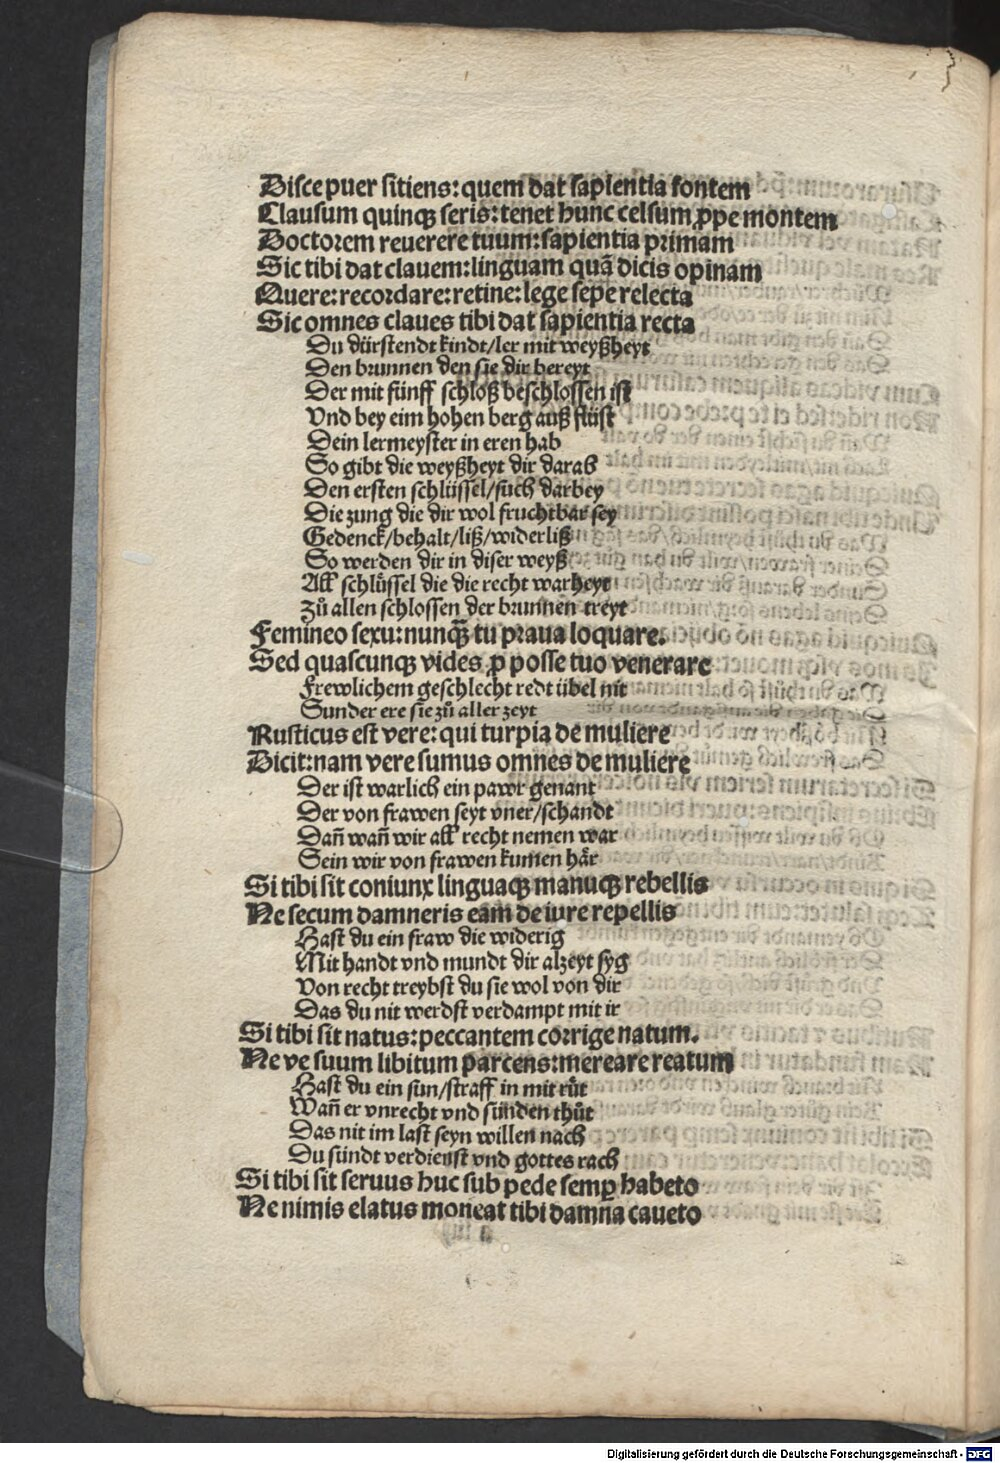 Disce puer sitiens: quem dat sapientia fontem
Clausum quinqꝫ seris: tenet hunc celsum ꝓpe montem
Doctorem reuerere tuum: sapientia primam
Sic tibi dat clauem: linguam quā dicis opinam
Quere: recordare: retine: lege sepe relecta
Sic omnes claues tibi dat sapientia recta
Du dürstendt kindt/ler mit weyßheyt
Den brunnen den sie dir bereyt
Der mit fünff schloß beschlossen ist
Vnd bey eim hohen berg auß flüst
Dein lermeyster in eren hab
So gibt die weyßheyt dir darab
Den ersten schlüssel/such darbey
Die zung die dir wol fruchtbar sey
Gedenck/behalt/liß/widerliß
So werden dir in diser weyß
All schlüssel die die recht warheyt
Zů allen schlossen der brunnen treyt
Femineo sexu: nunqꝫ̄ tu praua loquare.
Sed quascunqꝫ vides ꝓ posse tuo venerare
Frewlichem geschlecht redt übel nit
Sunder ere sie zů aller zeyt
Rusticus est vere: qui turpia de muliere
Dicit: nam vere sumus omnes de muliere
Der ist warlich ein pawr genant
Der von frawen seyt vner/schandt
Dañ wañ wir all recht nemen war
Sein wir von frawen kumen här
Si tibi sit coniunx linguaqꝫ manuqꝫ rebellis
Ne secum damneris eam de iure repellis
Hast du ein fraw die widerig
Mit handt vnd mundt dir alzeyt syg
Von recht treybst du sie wol von dir
Das du nit werdst verdampt mit ir
Si tibi sit natus: peccantem corrige natum.
Ne ve suum libitum parcens: mereare reatum
Hast du ein sun/straff in mit růt
Wañ er vnrecht vnd sünden thůt
Das nit im last seyn willen nach
Du sündt verdienst vnd gottes rach
Si tibi sit seruus huc sub pede semꝑ habeto
Ne nimis elatus moneat tibi damna caueto
Digitalisierung gefördert durch die Deutsche Forschungsgemeinschaft - DFG